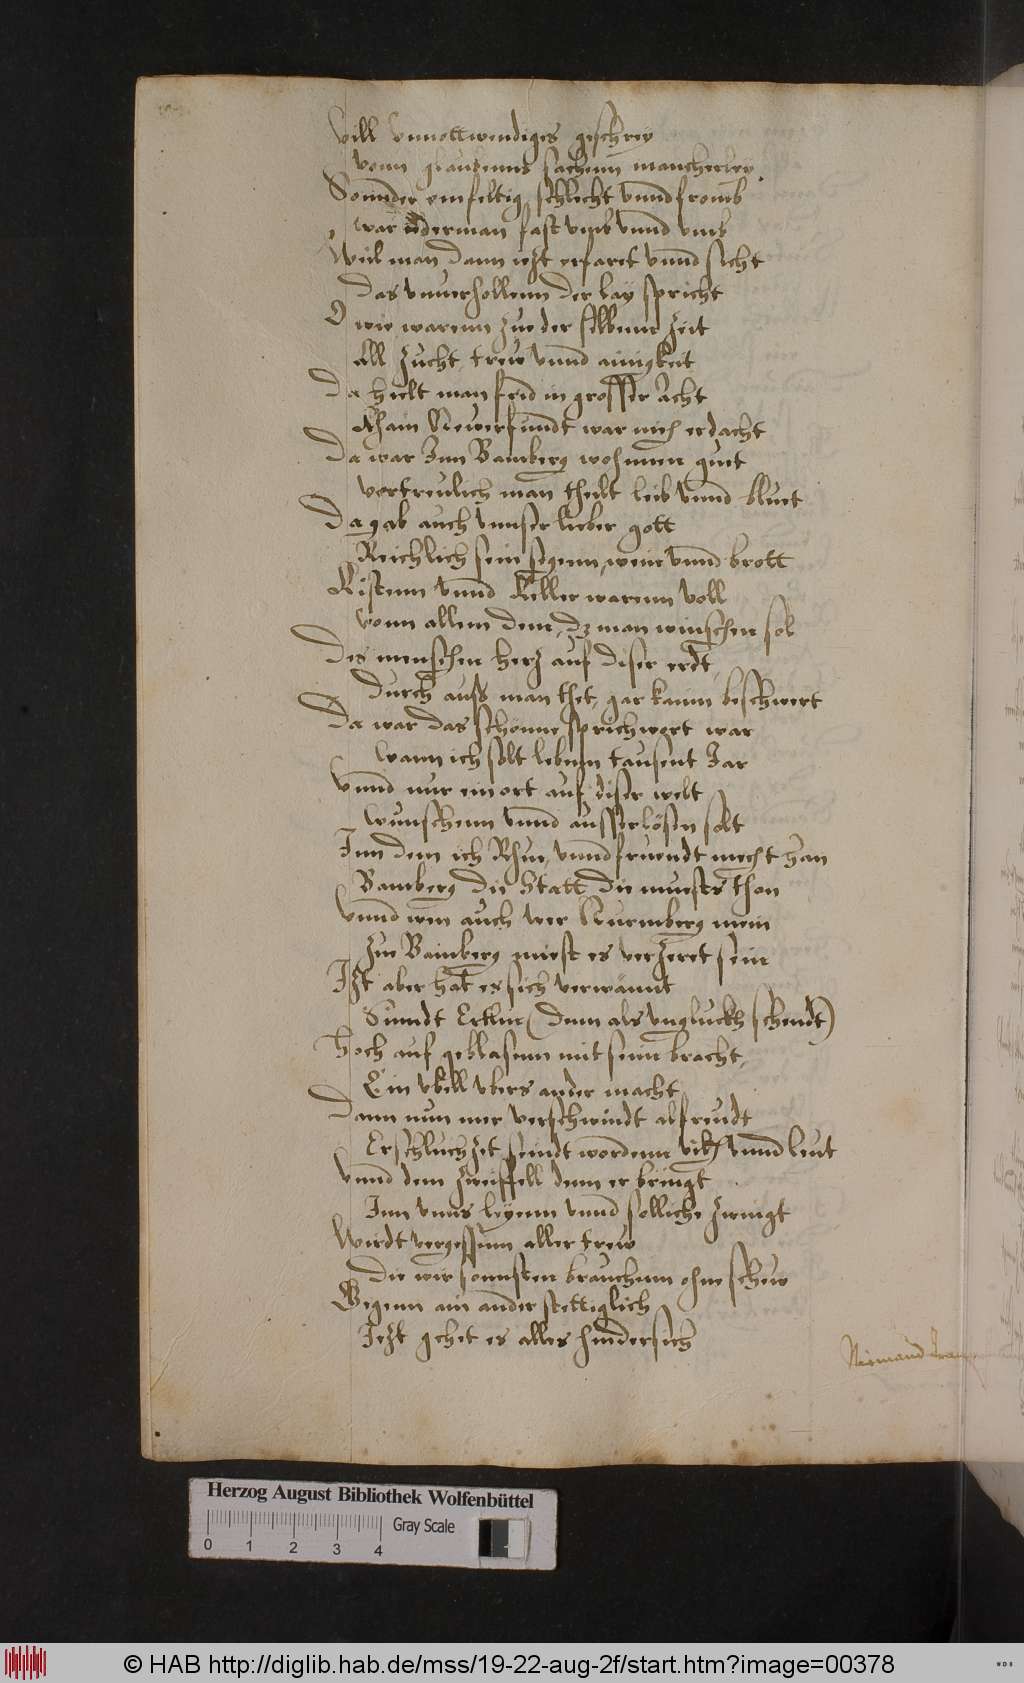 Vill Vnnottwendiges geschrey
vonn glaubenns sachenn mancherley.
Sonnder einfeltig schlecht vnnd fromb
war iederman fast vmb vnnd vmb
Weil man dann iezt erfaret vnnd sicht
das vnuerhollenn der lay spricht
O wie warenn zue der selbenn Zeit
All Zucht, trew vnnd ainigkeit
Da hielt man frid in grosser Acht
Khain Newerfundt war nech erdacht
Da war Inn Bamberg wohnnen guet
vertreulich man theilt leib vnnd bluet
Da gab auch vnnser lieber gott
Reichlich sein segenn, wein vnnd brott
Kistenn vnnd Keller warenn voll
vonn allem dem, dz man winschen sol
Des menschen herz auf diser erdt
durch auß man thet, gar kaum beschwert
Da war das schonne sprichwort war
Wann ich solt lebenn tausent Jar
Vnnd nur ein ort auf diser welt
Wunschenn vnnd ausserlösen solt
Inn dem ich Rhue, vnnd freundt mecht han
Bamberg die Statt die muests thon
Vnnd wen auch wer Nurmberg mein
Zue Bamberg miest es verzeret sein
Izt aber hat es sich verwannt
Sundt (denn als vngluckh schendt)
Hoch auf geblasenn mit seim bracht,
Ein vbell vbers ander macht
Dann nun mer verschwindt al freudt
Erschluchzet seindt wordenn vich vnnd leut
Vnnd dem Zweiffell denn er bringt
Inn vnns leyenn vnnd solliche zwingt
Wirdt vergessenn aller trew
Die wir sonnsten brauchenn ohne schew
Gegenn ain ander stettiglich
Jezt gehet es alles hindersich
Niemand
Herzog August Bibliothek Wolfenbüttel
Gray Scale
0 1 2 3 4
© HAB http://diglib.hab.de/mss/19-22-aug-2f/start.htm?image=00378